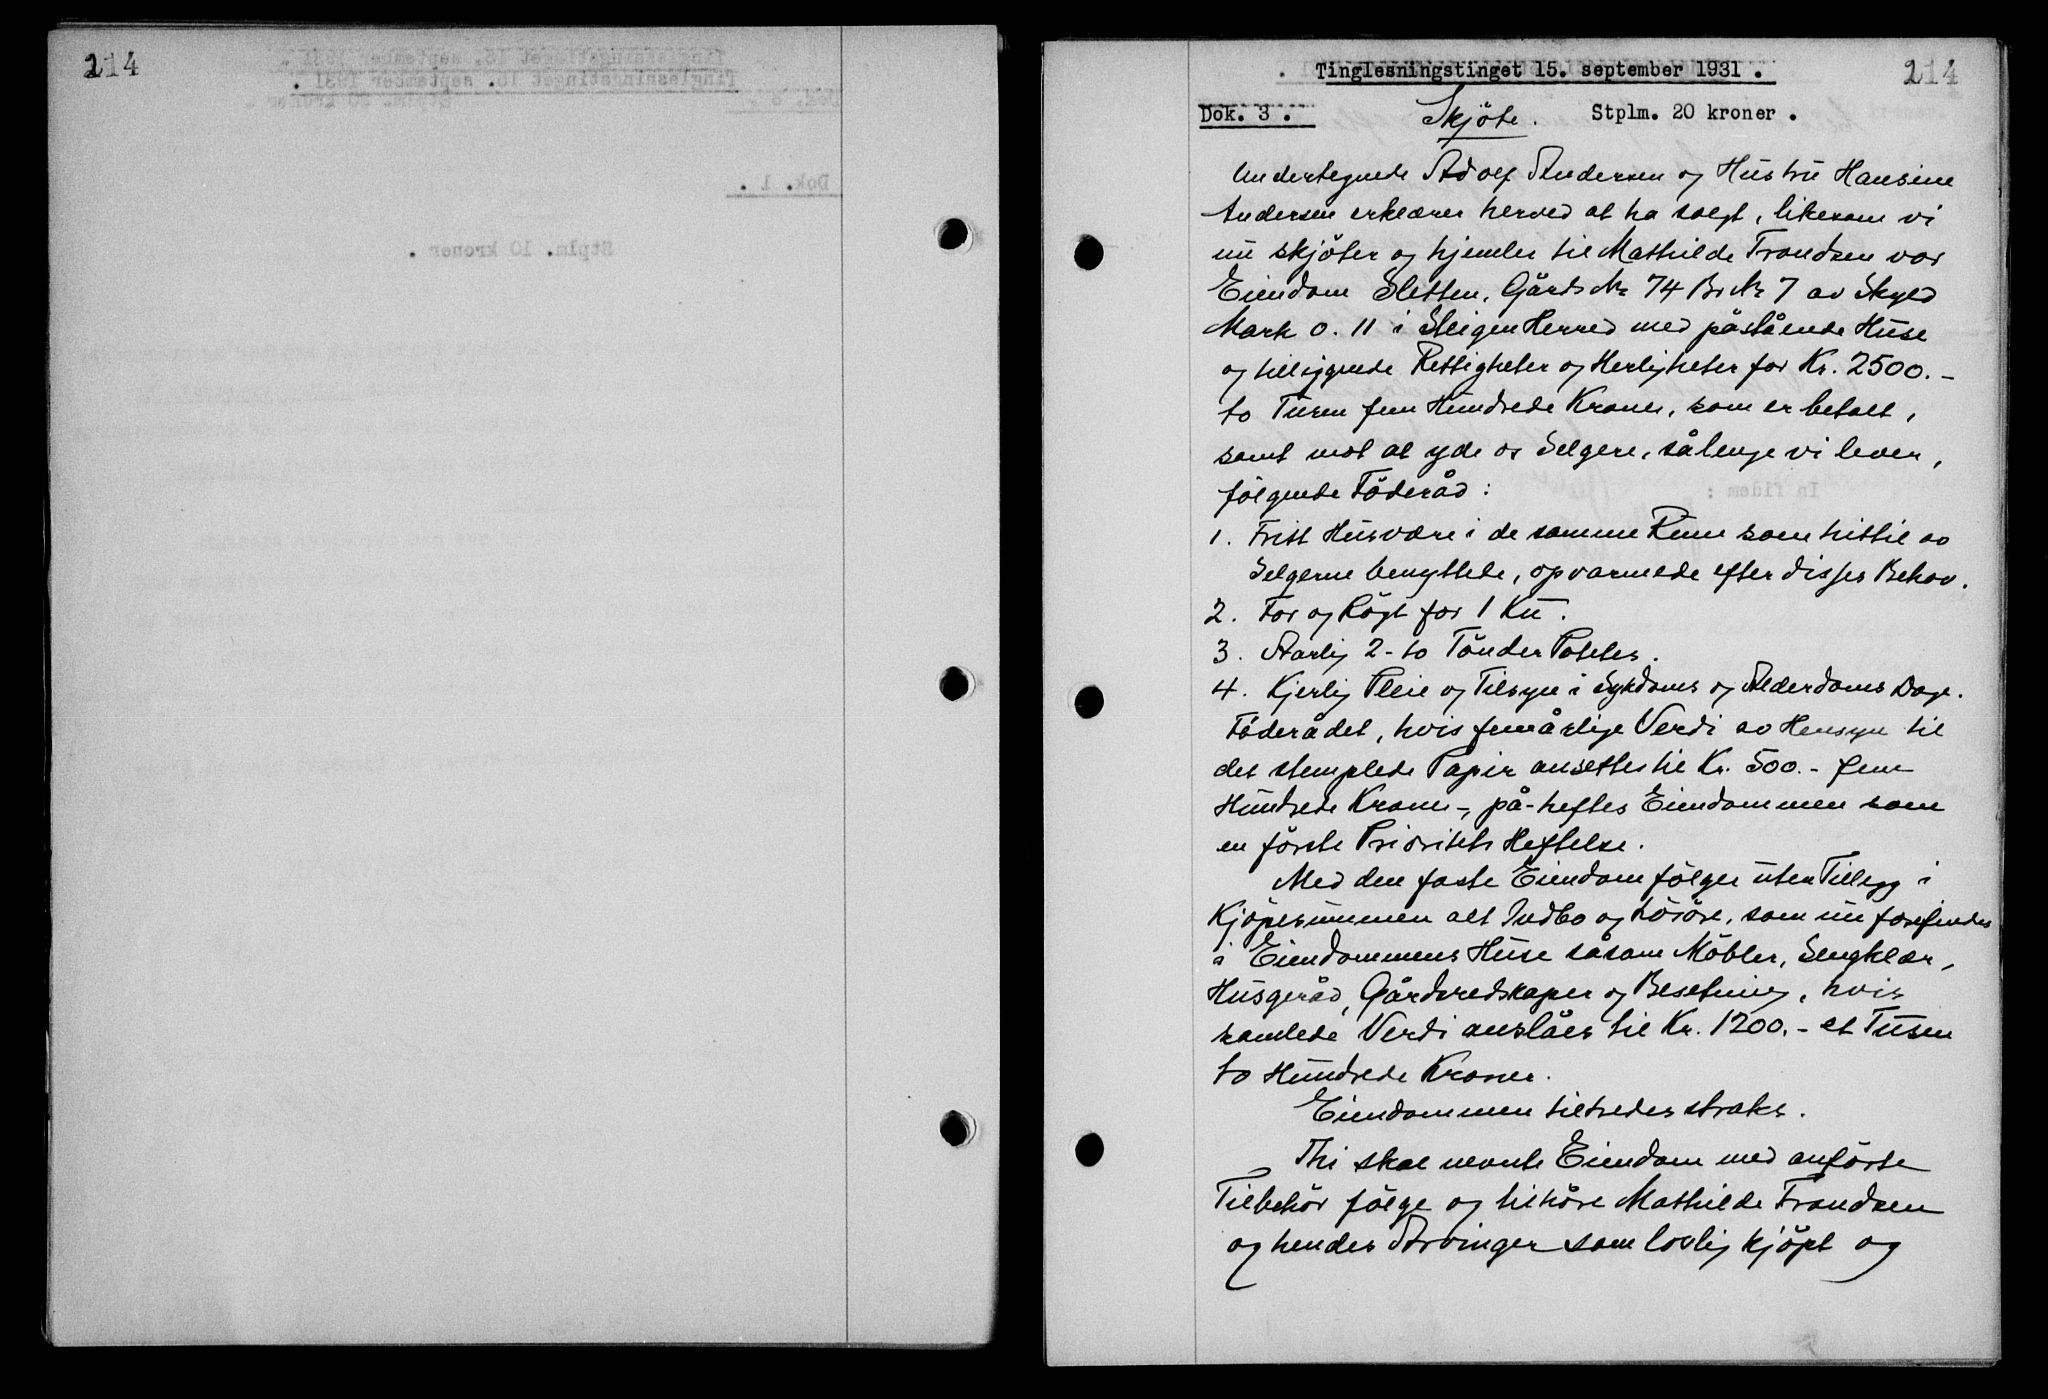 214
Tinglesningstinget 15. september 1931 .
214
Dok. 3 .
Skjöte.
Stplm. 20 kroner .
Undertegnede Adolf Andersen og Hustru Hansine
Andersen erklærer herved at ha solgt, likesom vi
nu skjöter og hjemler til Mathilde Trondsen vor
Eiendom Sletten, Gårds Nr 74 Br Nr 7 av Skyld
Mark 0.11 i Steigen Herred med påstående Huse
og tilliggende Rettigheter og Herligheter for Kr. 2500.-
to Tusen fem Hundrede Kroner, som er betalt,
samt mot at yde os Selgere, sålenge vi lever,
følgende Föderåd:
1. Fritt Husvære i de samme Rum som hittil av
Selgerne benyttede, opvarmede efter disses Behov.
2. For og Rögt for 1 Ku.
3. Aarlig 2-to Tönder Poteter.
4. Kjerlig Pleie og Tilsyn i Sykdoms og Alderdoms Dage.
Föderådet, hvis femårlige Verdi av Hensyn til
det stemplede Papir ansettes til Kr. 500.- fem
Hundrede Kroner-, på-heftes Eiendommen som
en förste Prioritets Heftelse.
Med den faste Eiendom fölger uten Tillegg i
Kjöpesummen alt Indbo og Lösöre, som nu forefindes
i Eiendommens Huse såsom Möbler, Sengklær,
Husgeråd, Gårdsredskaper og Besetning, hvis
samlede Verdi anslåes til Kr. 1200.- et Tusen
to Hundrede Kroner.
Eiendommen tiltredes straks.
Thi skal nevnte Eiendom med anförte
Tilbehör fölge og tilhöre Mathilde Trondsen
og hendes Arvinger som lovlig kjöpt og